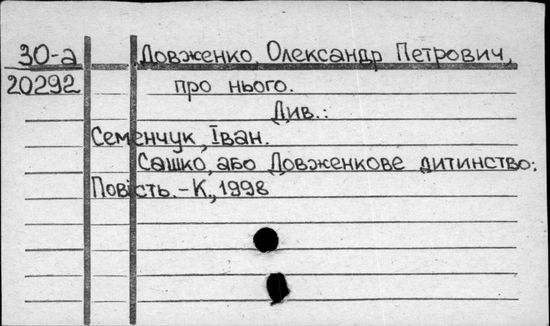 30-а Довженко Олександр Петрович,
20292 про нього.
Див.:
Семенчук, Іван.
Сашко, або Довженкове дитинство:
Повість.-К., 1998